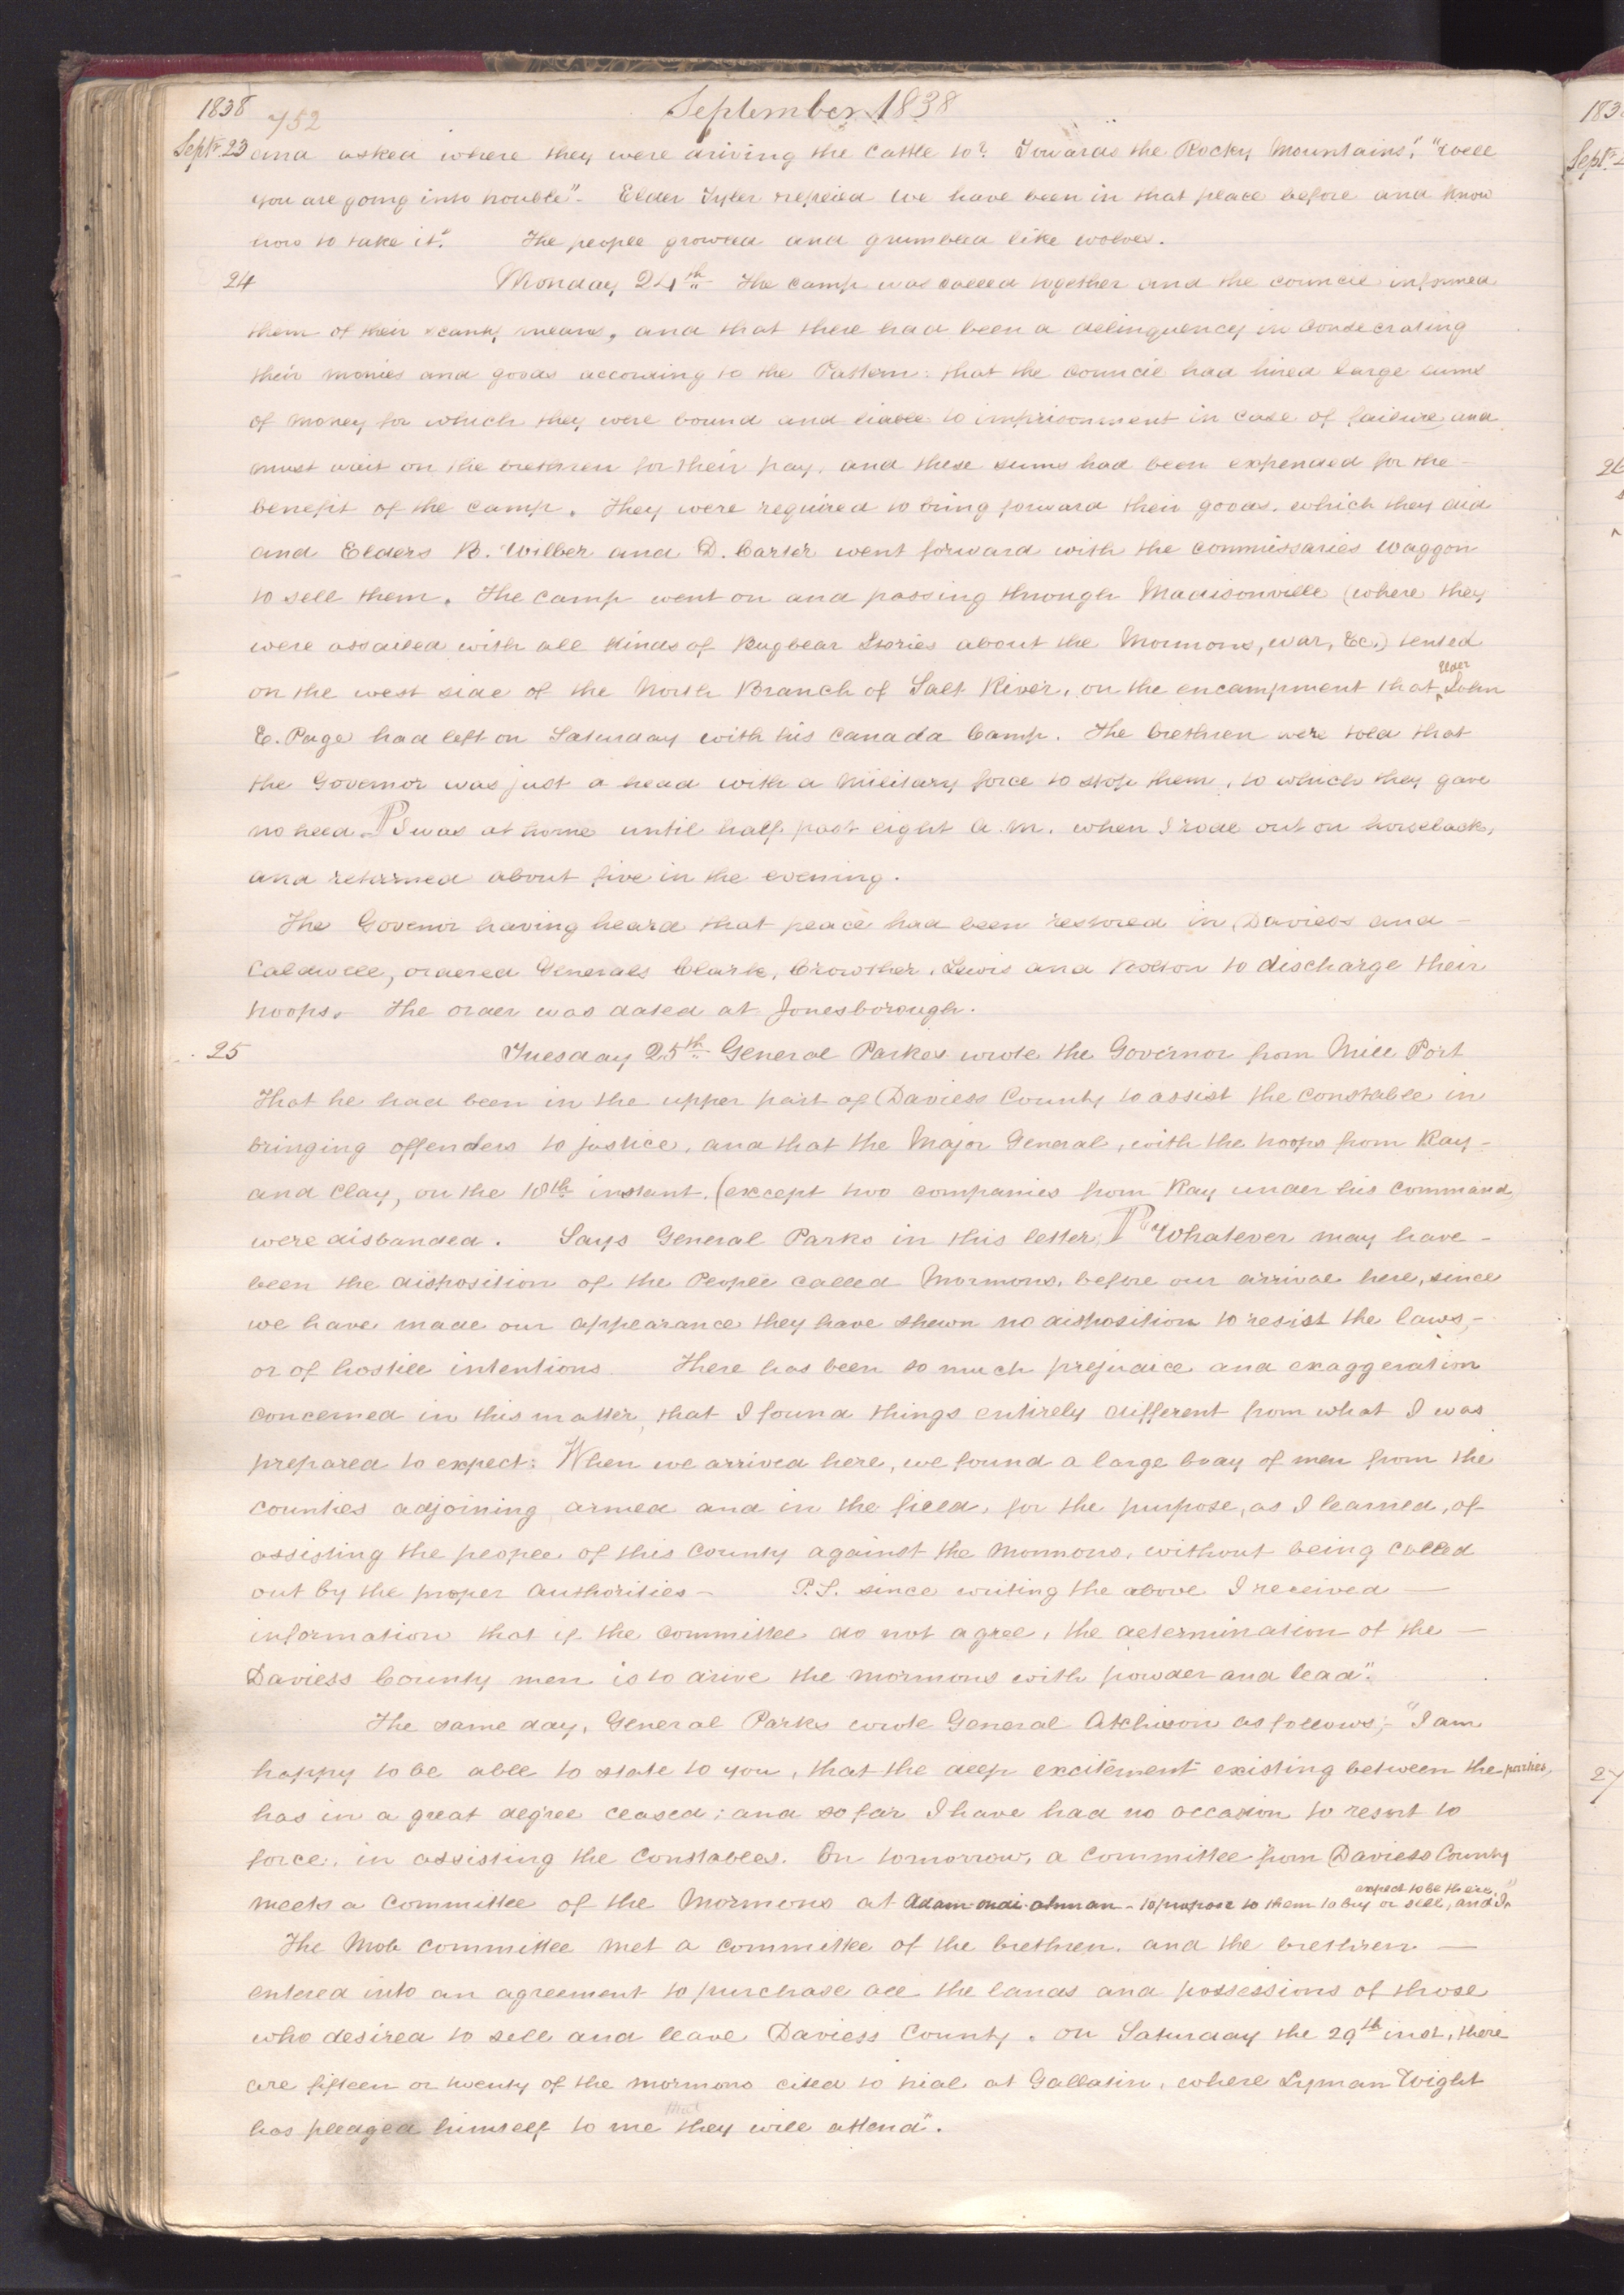 1838 752 September 1838
Septr. 23 and asked where they were driving the cattle to? Towards the Rocky Mountains", "well
you are going into trouble"- Elder Tyler replied we have been in that place before and know
how to take it". The people growled and grumbled like wolves.
24 Monday 24th The camp was called together and the council informed
them of their scanty means, and that there had been a delinquency in consecrating
their monies and goods according to the Pattern: that the council had hired large sums
of money for which they were bound and liable to imprisonment in case of failure, and
must wait on the brethren for their pay, and these sums had been expended for the -
benefit of the camp. They were required to bring forward their goods, which they did
and Elders B. Wilber and D. Carter went forward with the commissaries waggon
to sell them. The camp went on and passing through Madisonville (where they
were assailed with all kinds of Bugbear Stories about the Mormons, war, &c.) tented
on the west side of the North Branch of Salt River, on the encampment that ^Elder John
E. Page had left on Saturday with his Canada Camp. The brethren were told that
the Governor was just a head with a Military force to stop them, to which they gave
no heed. P I was at home until half past eight A.M. when I rode out on horseback,
and returned about five in the evening.
The Govenor having heard that peace had been restored in Daviess and -
Caldwell, ordered Generals Clark, Crowther, Lewis and Bolton to discharge their
troops. The order was dated at Jonesborough.
25 Tuesday 25th General Parkes wrote the Governor from Mill Port
That he had been in the upper part of Daviess County to assist the constable in
bringing offenders to justice, and that the Major General, with the troops from Ray -
and Clay, on the 18th instant, (except two companies from Ray under his command)
were disbanded. Says General Parks in this letter; P "Whatever may have -
been the disposition of the People called Mormons, before our arrival here, since
we have made our appearance they have shewn no disposition to resist the laws, -
or of hostile intentions. There has been so much prejudice and exaggeration
concerned in this matter, that I found things entirely different from what I was
prepared to expect: When we arrived here, we found a large body of men from the
counties adjoining armed and in the field, for the purpose, as I learned, of
assisting the people of this County against the Mormons, without being called
out by the proper Authorities - P.S. since writing the above I received —
information that if the committee do not agree, the determination of the —
Daviess County men is to drive the mormons with powder and lead".
The same day, General Parks wrote General Atchison as follows;- "I am
happy to be able to state to you, that the deep excitement existing between the parties,
has in a great degree ceased; and so far I have had no occasion to resort to
force, in assisting the Constables. On tomorrow, a Committee from Daviess County
meets a Committee of the Mormons at Adam-ondi-ahman - to propose to them to buy or sell, and I^ expect to be there."
The Mob committee met a committee of the brethren, and the brethren —
entered into an agreement to purchase all the lands and possessions of those
who desired to sell and leave Daviess County. On Saturday the 29th inst, there
are fifteen or twenty of the mormons cited to trial at Gallatin, where Lyman Wight
has pledged himself to me that they will attend".
183
Sept.
26
27